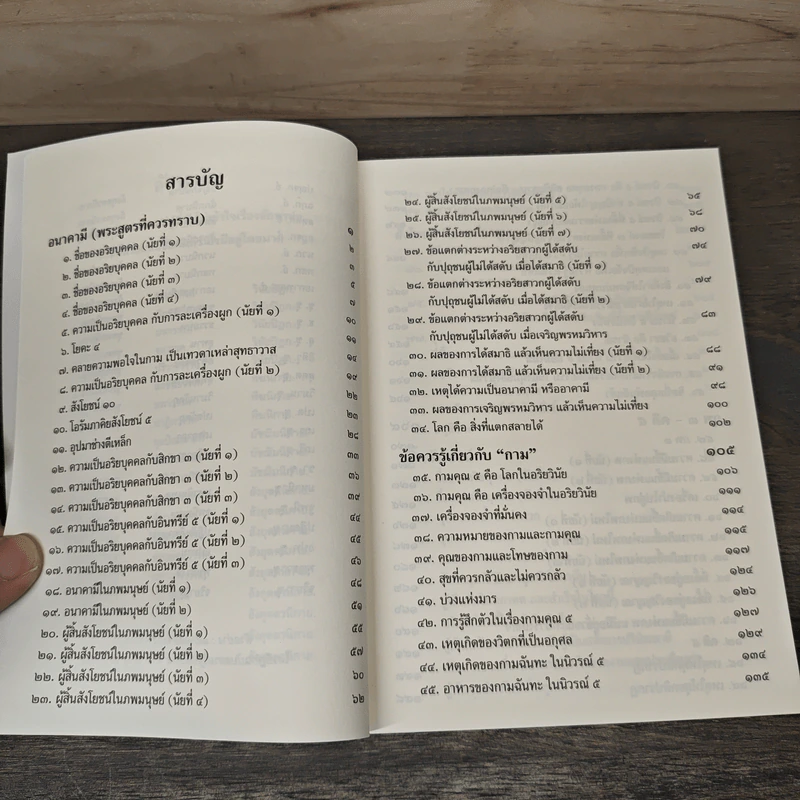 สารบัญ
อนาคามี (พระสูตรที่ควรทราบ) ๑
๑. ชื่อของอริยบุคคล (นัยที่ ๑) ๒
๒. ชื่อของอริยบุคคล (นัยที่ ๒) ๓
๓. ชื่อของอริยบุคคล (นัยที่ ๓) ๕
๔. ชื่อของอริยบุคคล (นัยที่ ๔) ๗
๕. ความเป็นอริยบุคคล กับการละเครื่องผูก (นัยที่ ๑) ๑๐
๖. โยคะ ๔ ๑๑
๗. คลายความพอใจในกาม เป็นเทวดาเหล่าสุทธาวาส ๑๔
๘. ความเป็นอริยบุคคล กับการละเครื่องผูก (นัยที่ ๒) ๑๙
๙. สังโยชน์ ๑๐ ๒๒
๑๐. โอรัมภาคิยสังโยชน์ ๕ ๒๓
๑๑. อุปมาช่างตีเหล็ก ๒๘
๑๒. ความเป็นอริยบุคคลกับสิกขา ๓ (นัยที่ ๑) ๓๓
๑๓. ความเป็นอริยบุคคลกับสิกขา ๓ (นัยที่ ๒) ๓๖
๑๔. ความเป็นอริยบุคคลกับสิกขา ๓ (นัยที่ ๓) ๓๙
๑๕. ความเป็นอริยบุคคลกับอินทรีย์ ๕ (นัยที่ ๑) ๔๔
๑๖. ความเป็นอริยบุคคลกับอินทรีย์ ๕ (นัยที่ ๒) ๔๕
๑๗. ความเป็นอริยบุคคลกับอินทรีย์ ๕ (นัยที่ ๓) ๔๖
๑๘. อนาคามีในภพมนุษย์ (นัยที่ ๑) ๔๘
๑๙. อนาคามีในภพมนุษย์ (นัยที่ ๒) ๕๑
๒๐. ผู้สิ้นสังโยชน์ในภพมนุษย์ (นัยที่ ๑) ๕๕
๒๑. ผู้สิ้นสังโยชน์ในภพมนุษย์ (นัยที่ ๒) ๕๗
๒๒. ผู้สิ้นสังโยชน์ในภพมนุษย์ (นัยที่ ๓) ๖๐
๒๓. ผู้สิ้นสังโยชน์ในภพมนุษย์ (นัยที่ ๔) ๖๒
๒๔. ผู้สิ้นสังโยชน์ในภพมนุษย์ (นัยที่ ๕) ๖๕
๒๕. ผู้สิ้นสังโยชน์ในภพมนุษย์ (นัยที่ ๖) ๖๘
๒๖. ผู้สิ้นสังโยชน์ในภพมนุษย์ (นัยที่ ๗) ๗๐
๒๗. ข้อแตกต่างระหว่างอริยสาวกผู้ได้สดับ ๗๔
กับปุถุชนผู้ไม่ได้สดับ เมื่อได้สมาธิ (นัยที่ ๑)
๒๘. ข้อแตกต่างระหว่างอริยสาวกผู้ได้สดับ ๗๙
กับปุถุชนผู้ไม่ได้สดับ เมื่อได้สมาธิ (นัยที่ ๒)
๒๙. ข้อแตกต่างระหว่างอริยสาวกผู้ได้สดับ ๘๓
กับปุถุชนผู้ไม่ได้สดับ เมื่อเจริญพรหมวิหาร
๓๐. ผลของการได้สมาธิ แล้วเห็นความไม่เที่ยง (นัยที่ ๑) ๘๘
๓๑. ผลของการได้สมาธิ แล้วเห็นความไม่เที่ยง (นัยที่ ๒) ๙๑
๓๒. เหตุได้ความเป็นอนาคามี หรืออาคามี ๙๘
๓๓. ผลของการเจริญพรหมวิหาร แล้วเห็นความไม่เที่ยง ๑๐๐
๓๔. โลก คือ สิ่งที่แตกสลายได้ ๑๐๒
ข้อควรรู้เกี่ยวกับ “กาม” ๑๐๕
๓๕. กามคุณ ๕ คือ โลกในอริยวินัย ๑๐๖
๓๖. กามคุณ คือ เครื่องจองจำในอริยวินัย ๑๑๑
๓๗. เครื่องจองจำที่มั่นคง ๑๑๔
๓๘. ความหมายของกามและกามคุณ ๑๑๕
๓๙. คุณของกามและโทษของกาม ๑๑๗
๔๐. สุขที่ควรกลัวและไม่ควรกลัว ๑๒๔
๔๑. บ่วงแห่งมาร ๑๒๖
๔๒. การรู้สึกตัวในเรื่องกามคุณ ๕ ๑๒๗
๔๓. เหตุเกิดของวิตกที่เป็นอกุศล ๑๒๙
๔๔. เหตุเกิดของกามฉันทะ ในนิวรณ์ ๕ ๑๓๔
๔๕. อาหารของกามฉันทะ ในนิวรณ์ ๕ ๑๓๕